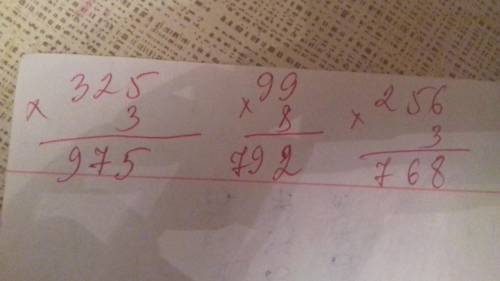 325
× 3
975
99
× 8
792
256
× 3
768